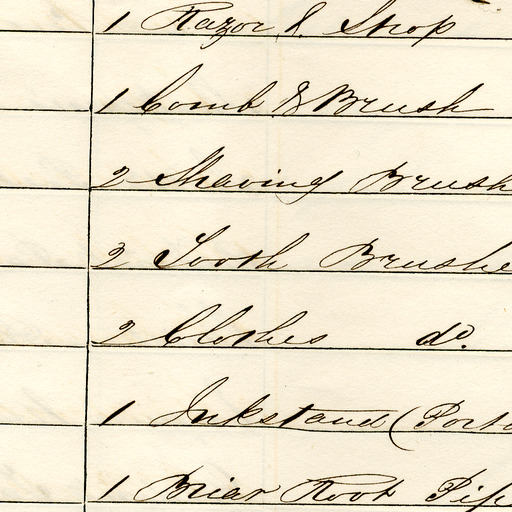 1 Razor & Strop
1 Comb & Brush
2 Shaving Brush
3 Tooth Brushe
2 Clothes do.
1 Inkstand (Porta
1 Briar Root Pip